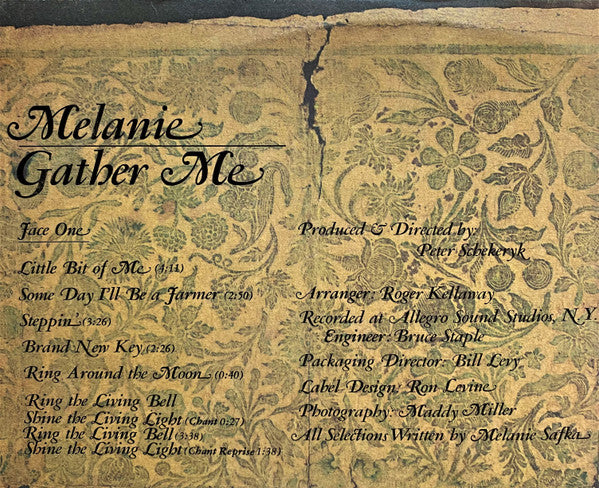 Melanie
Gather Me
Face One
Little Bit of Me (4:11)
Some Day I'll Be a Farmer (2:50)
Steppin' (3:26)
Brand New Key (2:26)
Ring Around the Moon (0:40)
Ring the Living Bell
Shine the Living Light (Chant 0:27)
Ring the Living Bell (3:38)
Shine the Living Light (Chant Reprise 1:38)
Produced & Directed by:
Peter Schekeryk
Arranger: Roger Kellaway
Recorded at Allegro Sound Studios, N.Y.
Engineer: Bruce Staple
Packaging Director: Bill Levy
Label Design: Ron Levine
Photography: Maddy Miller
All Selections Written by Melanie Safka